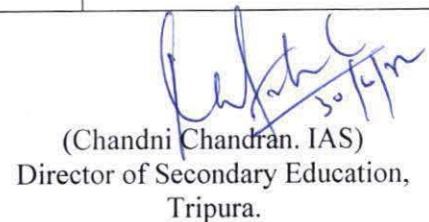 30/6/22
(Chandni Chandran. IAS)
Director of Secondary Education,
Tripura.